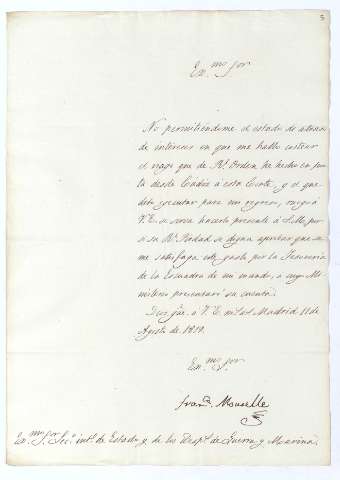 5
Ex.mo Sor
No permitiendome el estado de atraso
de intereses en que me hallo costear
el viage que de Rl. Orden he hecho en pos-
ta desde Cadiz a esta Corte, y el que
debo executar para mi regreso, ruego á
V.E. se sirva hacerlo presente á S.M. por
si su Rl. Piedad se digna aprobar que se
me satisfaga este gasto por la Tesoreria
de la Escuadra de mi mando, a cuyo Mi-
nisterio presentaré su cuenta.
Dios gūe. á V.E. m.s a.s Madrid 11 de
Agosto de 1819.
Ex.mo Sor.
Fran.co Mourelle
Ex.mo Sor. Sec.o int.o de Estado y de los Desp.s de Guerra y Marina.